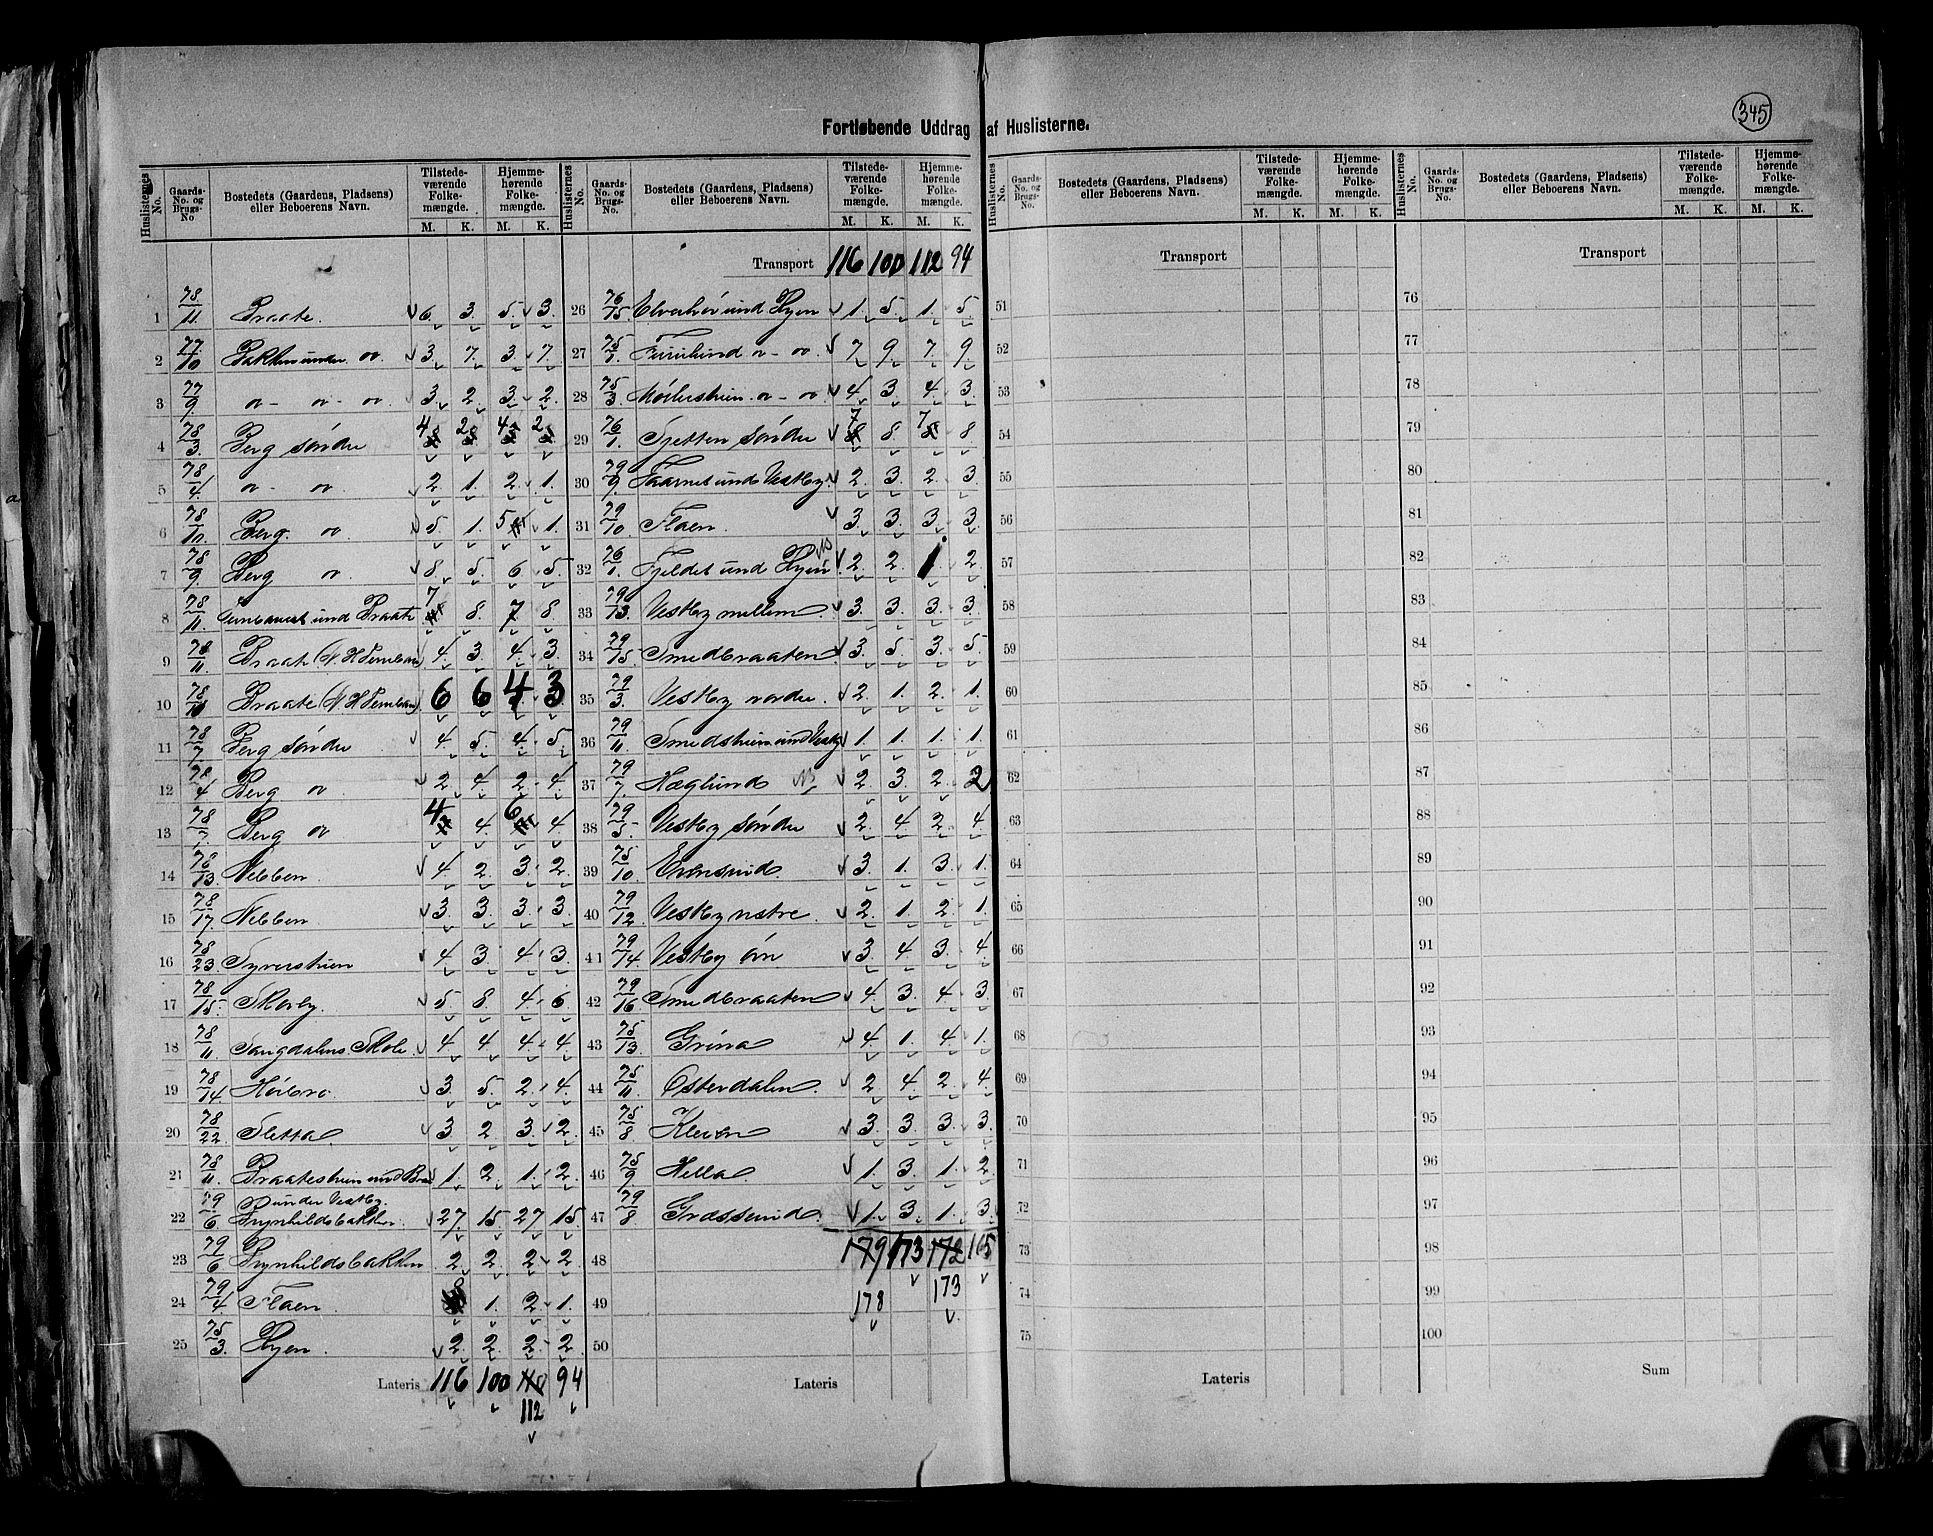 345
Fortløbende Uddrag af Huslisterne.
Huslisternes No. Gaards-No. og Brugs-No Bostedets (Gaardens, Pladsens) eller Beboerens Navn. Tilstede-værende Folke-mængde. M. K. Hjemme-hørende Folke-mængde. M. K.
Huslisternes No. Gaards-No. og Brugs-No. Bostedets (Gaardens, Pladsens) eller Beboerens Navn. Tilstede-værende Folke-mængde. M. K. Hjemme-hørende Folke-mængde. M. K.
Huslisternes No. Gaards-No. og Brugs-No. Bostedets (Gaardens, Pladsens) eller Beboerens Navn. Tilstede-værende Folke-mængde. M. K. Hjemme-hørende Folke-mængde. M. K.
Huslisternes No. Gaards-No. og Brugs-No. Bostedets (Gaardens, Pladsens) eller Beboerens Navn. Tilstede-værende Folke-mængde. M. K. Hjemme-hørende Folke-mængde. M. K.
1 78/11 Braate. 6. 3. 5. 3.
2 77/10 Bakken under 3. 7. 3. 7.
3 77/9 3. 2. 3. 2.
4 78/3 Berg søndre 4 2 4 2
5 78/4 2. 1. 2. 1.
6 78/10 Berg. 5. 1. 5 1.
7 78/9 Berg 8. 5. 6. 5.
8 78/11 und Braate 7 8. 7. 8.
9 78/11 Braate 4. 3. 4. 3.
10 78/11 Braate 6 6 4 3
11 78/7 Berg søndre 4. 5. 4. 5.
12 78/4 Berg 2. 4. 2. 4.
13 78/7 Berg 4 4. 6 4.
14 78/13 Nebben 4 2. 3. 2.
15 78/17 Nebben 3. 3. 3. 3.
16 78/23 4 3 4 3.
17 78/15 Skovly. 5. 8. 4. 6.
18 78/11 Sangdalens Skole. 4. 4 4. 4
19 78/14 Høibro. 3. 5. 2. 4.
20 78/22 Sletta 3 2 3. 2.
21 78/11 Braatestuen und 1. 2. 1. 2.
22 79/6 B. under Vestby. Brynhildsbakken. 27. 15. 27 15
23 79/6 Brynhildsbakken 2. 2. 2. 2.
24 79/4 Flaen. 1. 2. 1.
25 75/3 Byen. 2. 2. 2. 2.
Lateris 116 100 94
112
Transport 116 100 112 94
26 76/15 und Byen 1. 5. 1. 5.
27 75/1 Furulund 7 9. 7. 9.
28 75/3 4 3. 4. 3.
29 76/1 Tjetten søndre 7 8. 7 8
30 79/9 Taarnet und Vestby. 2. 3. 2. 3.
31 79/10 Flaen. 3. 3. 3. 3.
32 76/1 Fjeldet und Byen 2. 2. 1. 2.
33 79/13 Vestby mellem. 3. 3. 3. 3.
34 79/15 Smedbraaten 3. 5. 3. 5.
35 79/3 Vestby nordre. 2. 1. 2. 1.
36 79/11 Smedstuen und Vestby 1. 1. 1. 1.
37 79/7 Haglund NB 2. 3. 2. 2
38 79/5 Vestby søndre 2. 4 2. 4.
39 75/10 Evensund 3. 1. 3. 1.
40 79/12 Vestby østre. 2. 1. 2. 1.
41 79/14 Vestby øvre 3. 4. 3. 4.
42 79/16 Smedbraaten 4. 3. 4. 3.
43 75/13 Grina 4. 1. 4. 1.
44 75/11 Østerdalen 2. 4 2. 4.
45 75/8 Kleven 3. 3. 3. 3.
46 75/9 Hella. 1. 3. 1. 2.
47 79/8 Græssund. 1. 3. 1. 3.
48 179 173 172 165
49 178 173
50
Lateris
Transport
51
52
53
54
55
56
57
58
59
60
61
62
63
64
65
66
67
68
69
70
71
72
73
74
75
Lateris
Transport
76
77
78
79
80
81
82
83
84
85
86
87
88
89
90
91
92
93
94
95
96
97
98
99
100
Sum